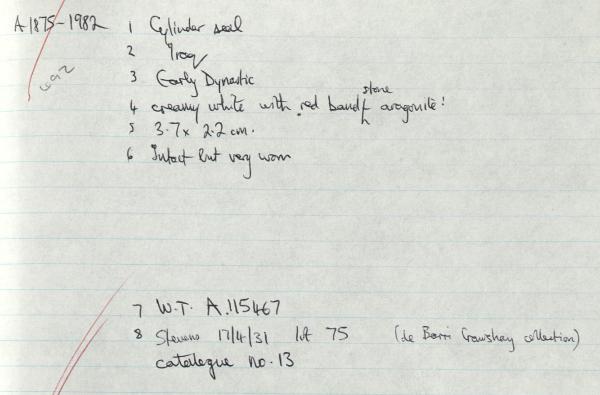 A 1875-1982 1 Cylinder seal
2 Iraq
3 Early Dynastic
4 creamy white with red band stone aragonite!
5 3.7 x 2.2 cm.
6 Intact but very worn
7 W.T. A.115467
8 Stevens 17/4/31 lot 75 (de Barri Crawshay collection)
catalogue no. 13